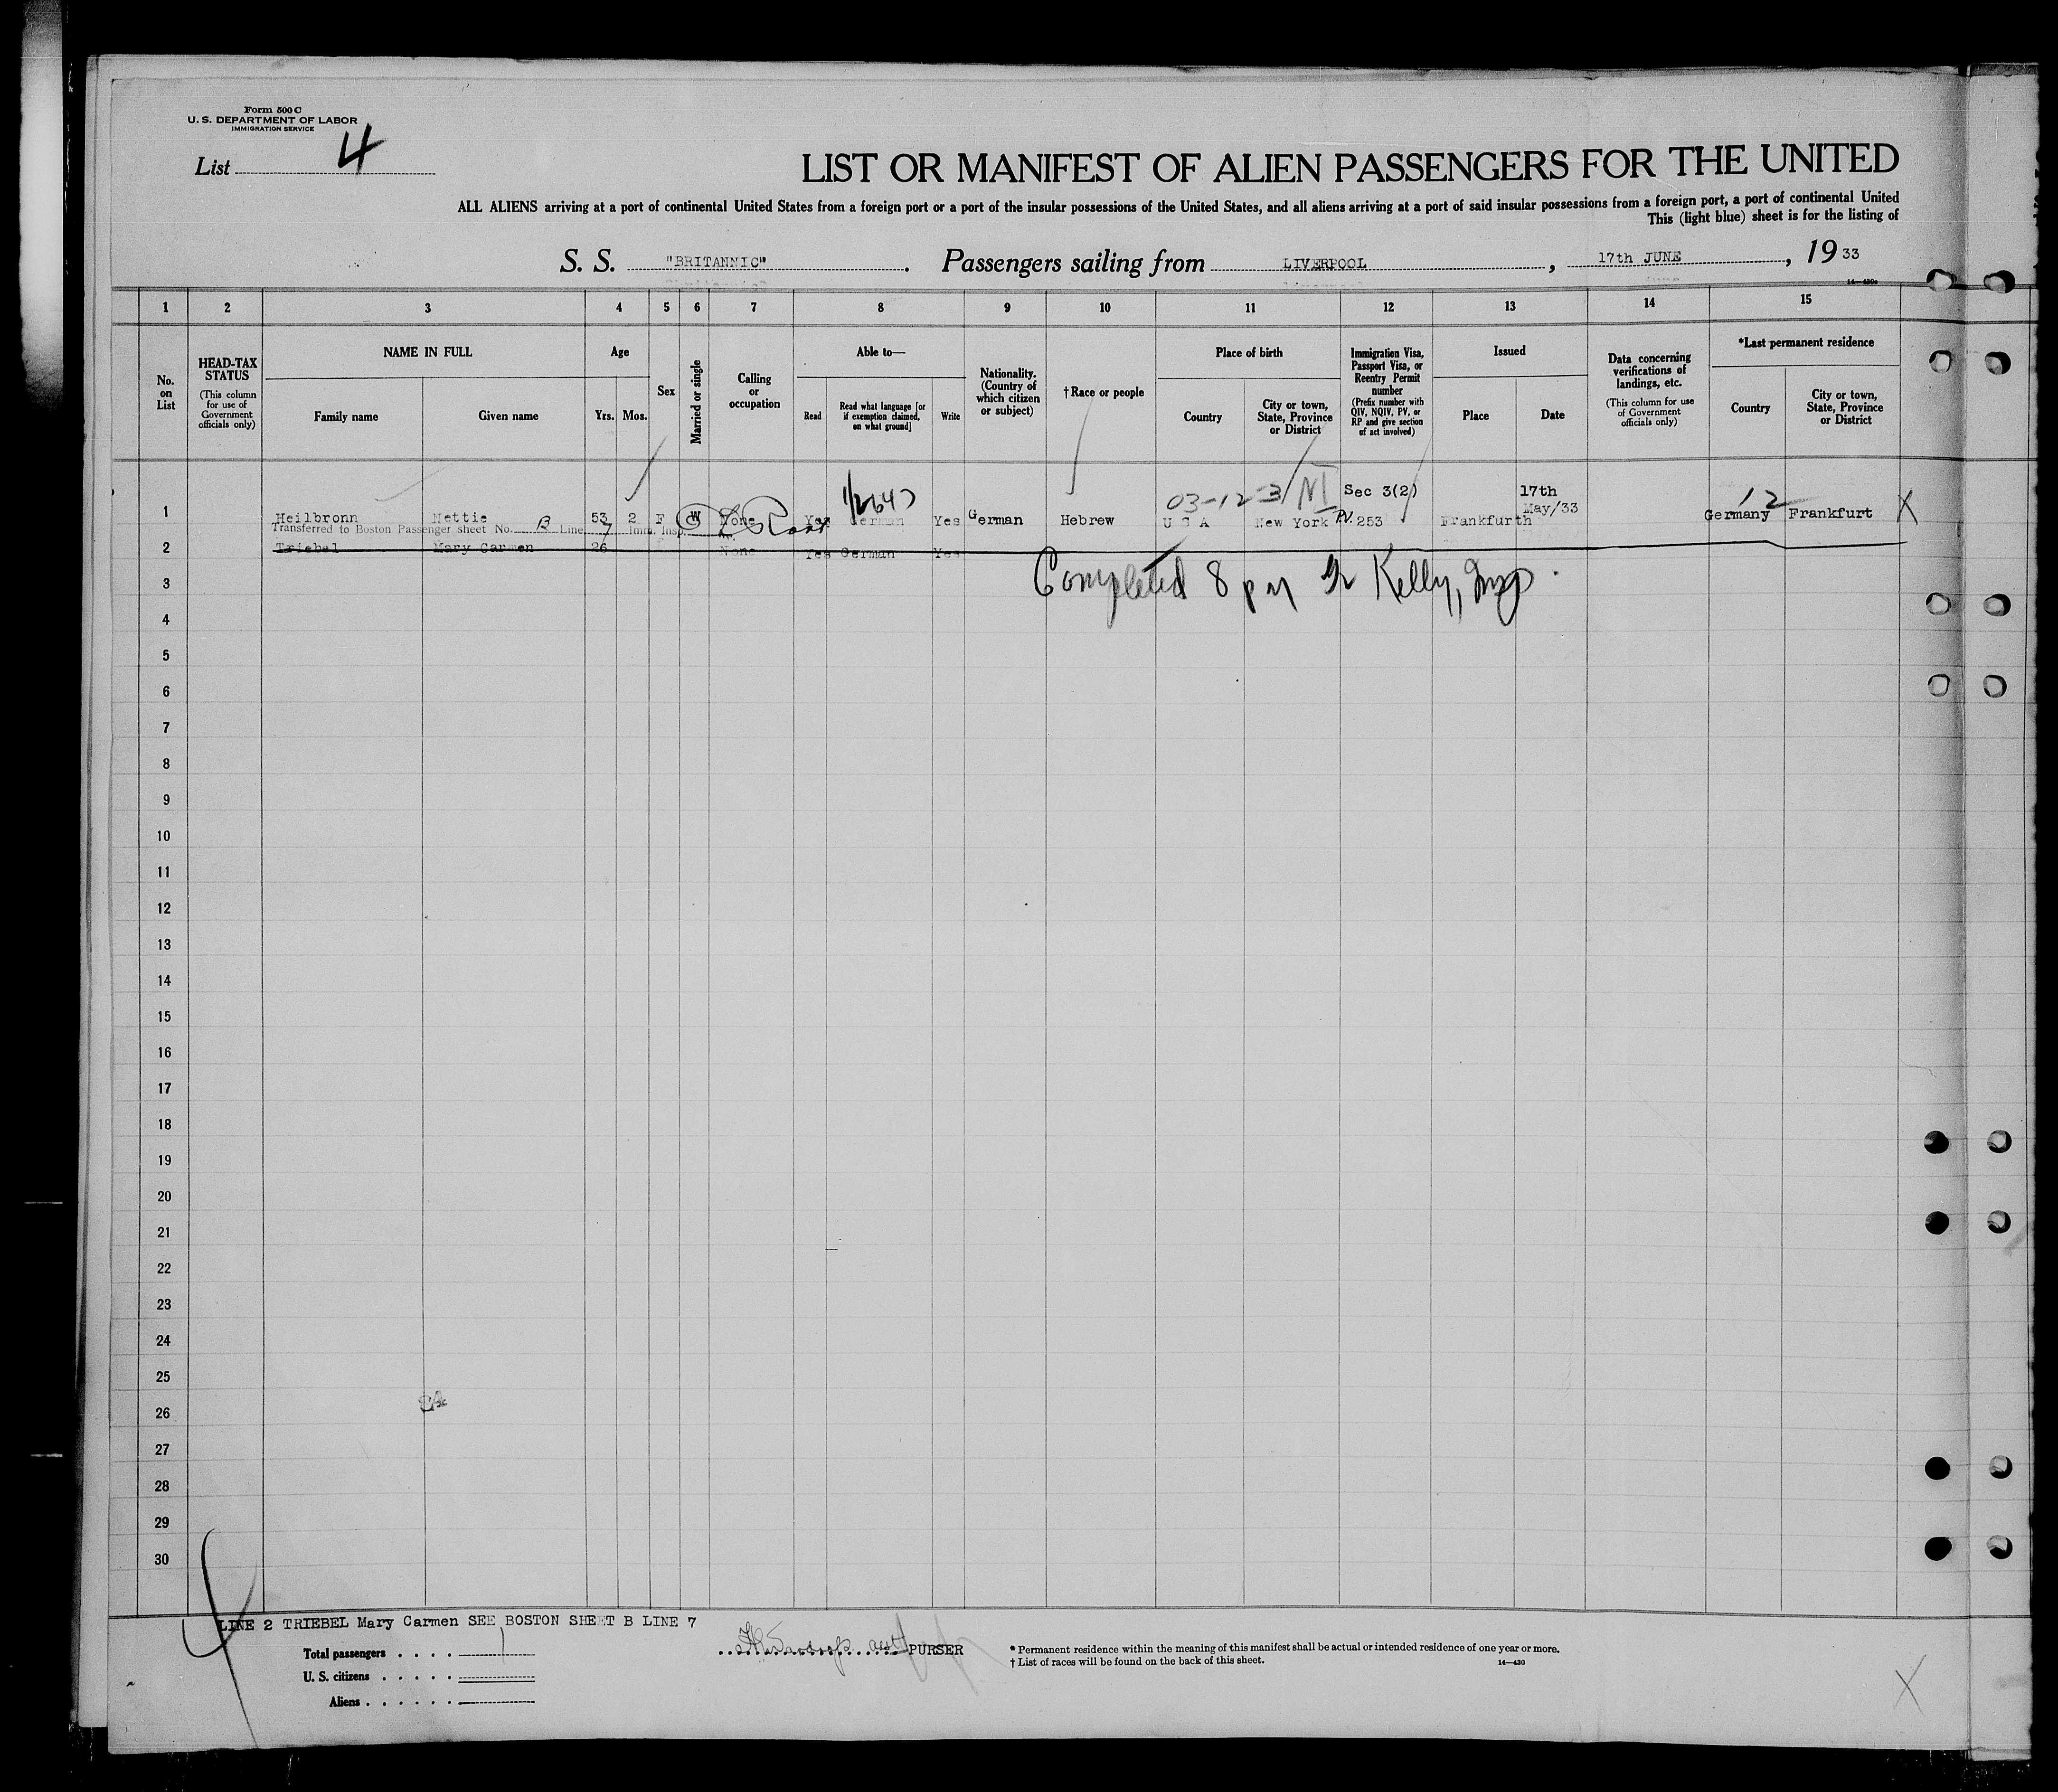 Form 500 C
U. S. DEPARTMENT OF LABOR
IMMIGRATION SERVICE
List 4
LIST OR MANIFEST OF ALIEN PASSENGERS FOR THE UNITED
ALL ALIENS arriving at a port of continental United States from a foreign port or a port of the insular possessions of the United States, and all aliens arriving at a port of said insular possessions from a foreign port, a port of continental United
This (light blue) sheet is for the listing of
S. S. "BRITANNIC". Passengers sailing from LIVERPOOL, 17th JUNE, 1933
1 2 3 4 5 6 7 8 9 10 11 12 13 14 15
No. on List
HEAD-TAX STATUS (This column for use of Government officials only)
NAME IN FULL
Family name Given name
Age
Yrs. Mos.
Sex
Married or single
Calling or occupation
Able to—
Read
Read what language [or if exemption claimed, on what ground]
Write
Nationality. (Country of which citizen or subject)
†Race or people
Place of birth
Country
City or town, State, Province or District
Immigration Visa, Passport Visa, or Reentry Permit number (Prefix number with QIV, NQIV, PV, or RP and give section of act involved)
Issued
Place Date
Data concerning verifications of landings, etc. (This column for use of Government officials only)
*Last permanent residence
Country
City or town, State, Province or District
03-12-3/ NI Sec 3(2) 17th May/33 12
1 Heilbronn Nettie 53 2 F W None Yes German Yes German Hebrew U S A New York PV 253 Frankfurth Germany Frankfurt X
Transferred to Boston Passenger sheet No. B Line 7 Imm. Insp.
2 Triebel Mary Carmen 26 None Yes German Yes
Completed 8 pm Kelly, Insp.
3
4
5
6
7
8
9
10
11
12
13
14
15
16
17
18
19
20
21
22
23
24
25
26
27
28
29
30
LINE 2 TRIEBEL Mary Carmen SEE BOSTON SHEET B LINE 7
Total passengers
U. S. citizens
Aliens
PURSER
* Permanent residence within the meaning of this manifest shall be actual or intended residence of one year or more.
† List of races will be found on the back of this sheet.
14—430
X